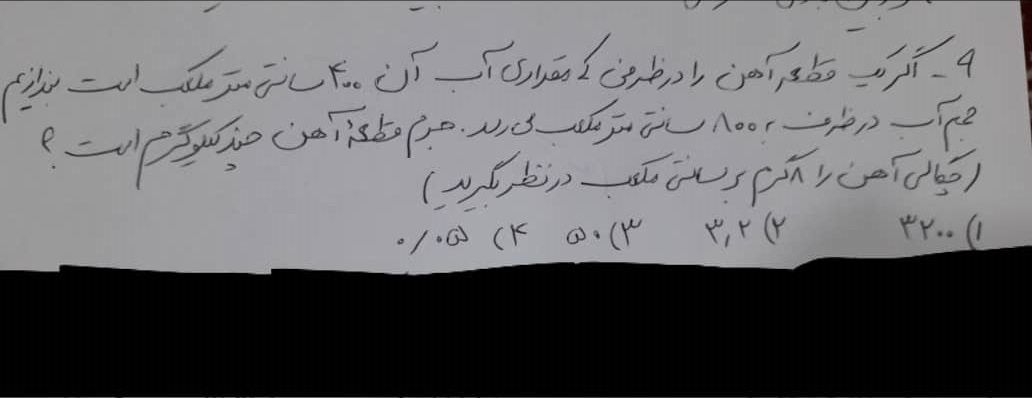 ۹ - اگر یک قطعه آهن را در ظرفی که مقداری آب آن ۴۰۰ سانتی متر مکعب است بندازیم
حجم آب در ظرف به ۸۰۰ سانتی متر مکعب می رسد. جرم قطعهٔ آهن چند کیلوگرم است؟
(چگالی آهن را ۸ گرم بر سانتی مکعب در نظر بگیرید)
۱) ۳۲۰۰ ۲) ۳٫۲ ۳) ۵۰ ۴) ۰/۰۵